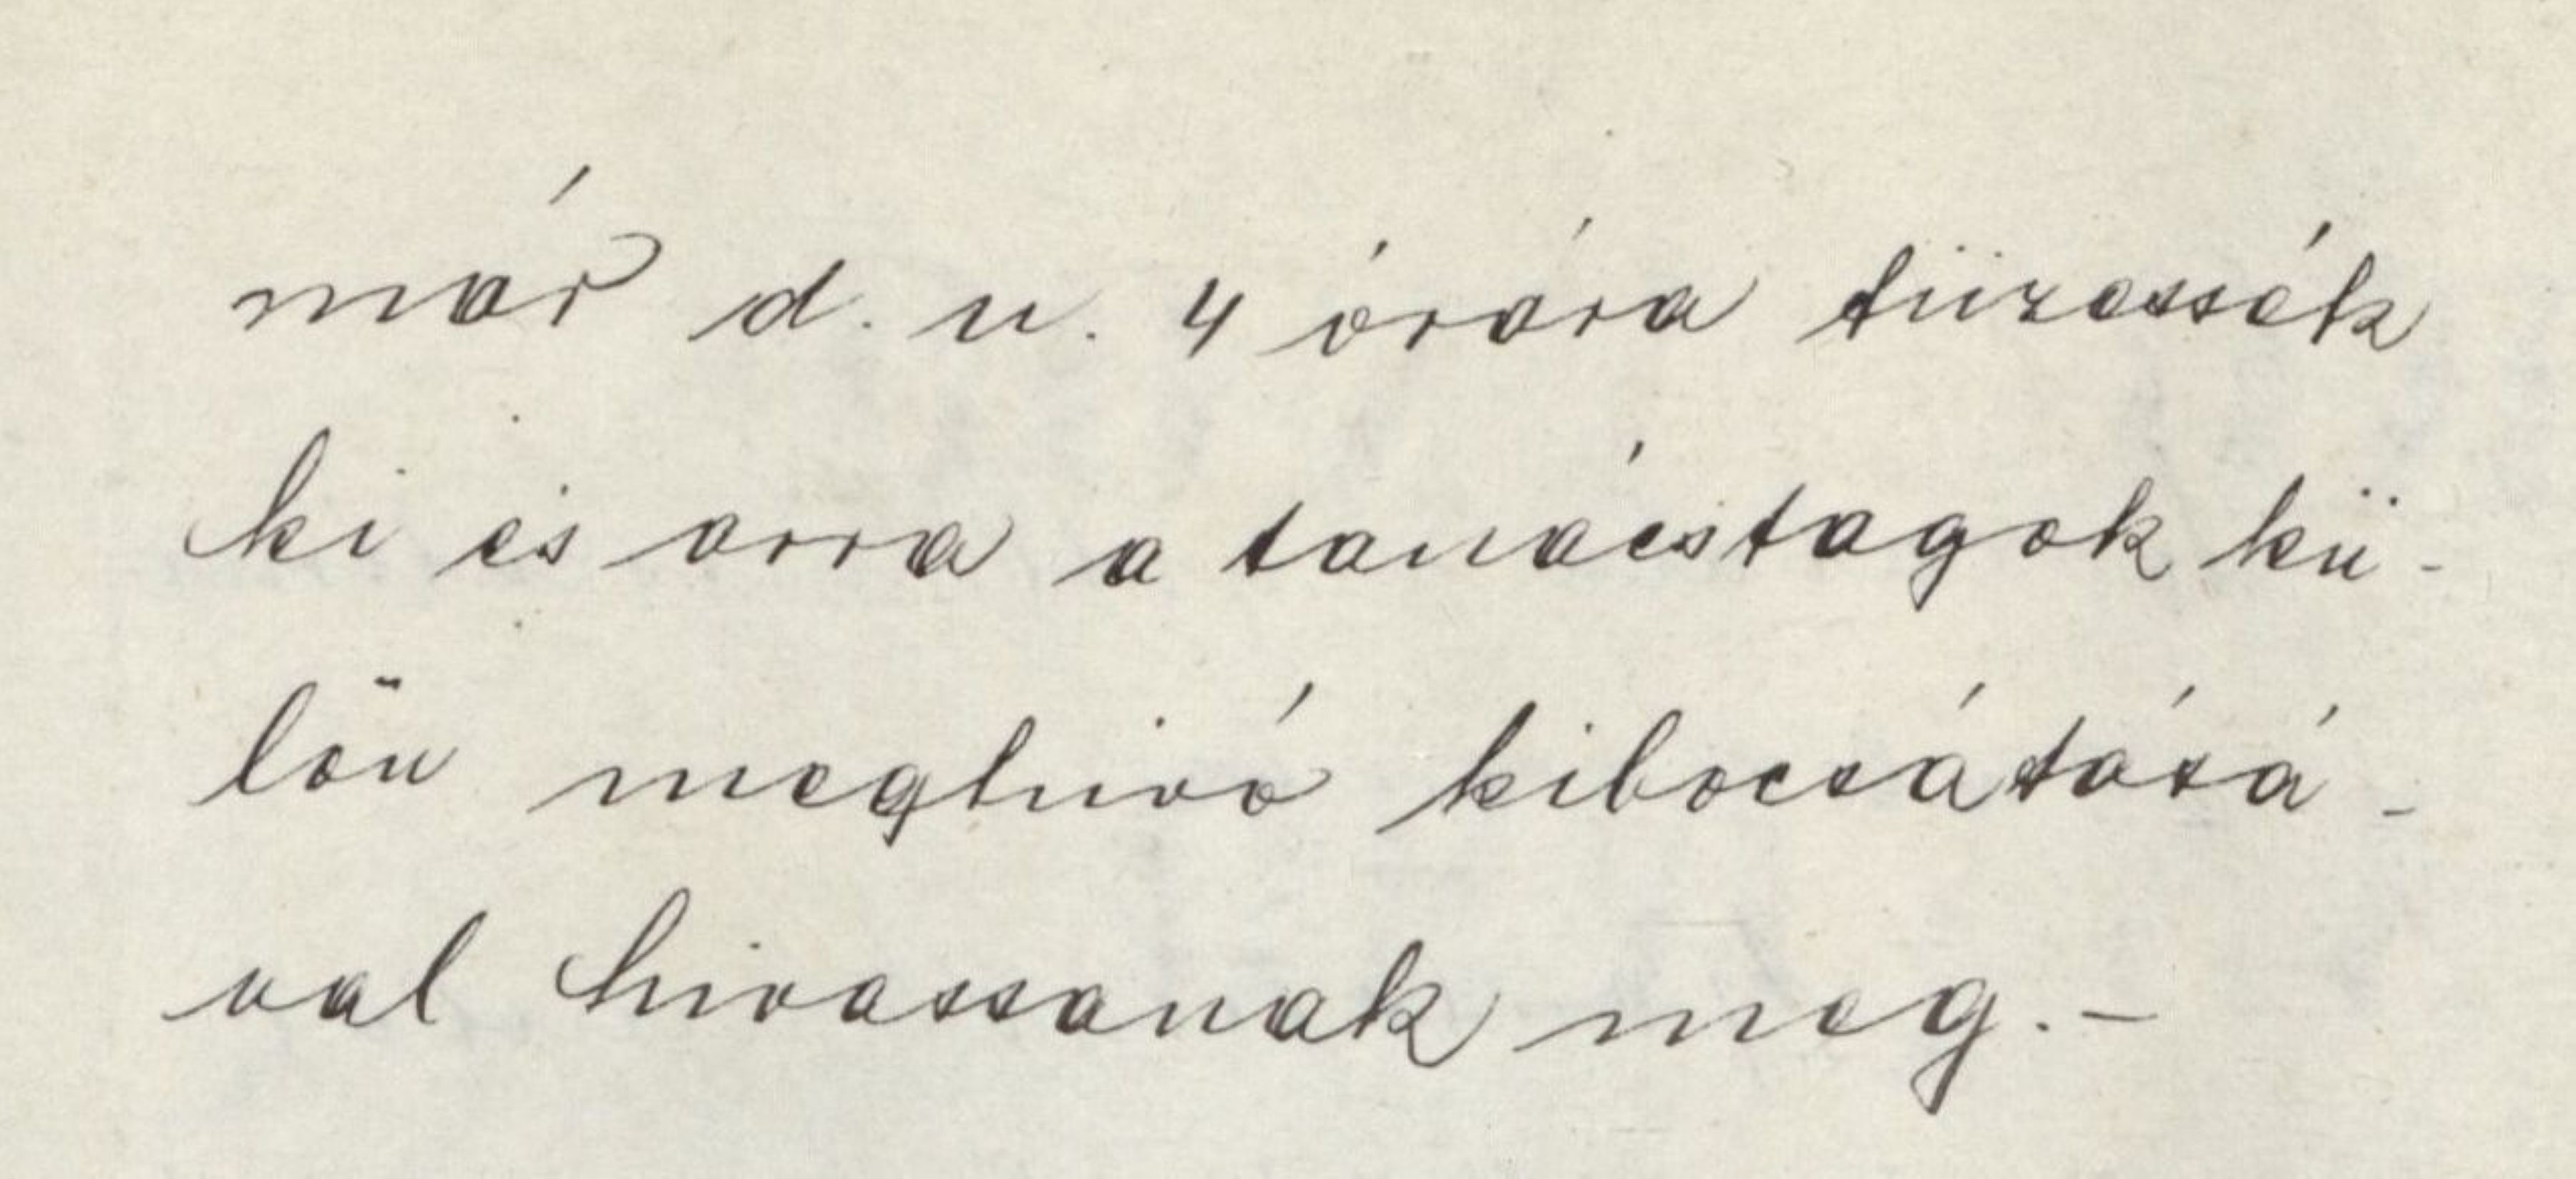 már d. u. 4 órára tüzessék
ki és arra a tanácstagok kü-
lön meghivó kibocsátásá-
val hivassanak meg. -